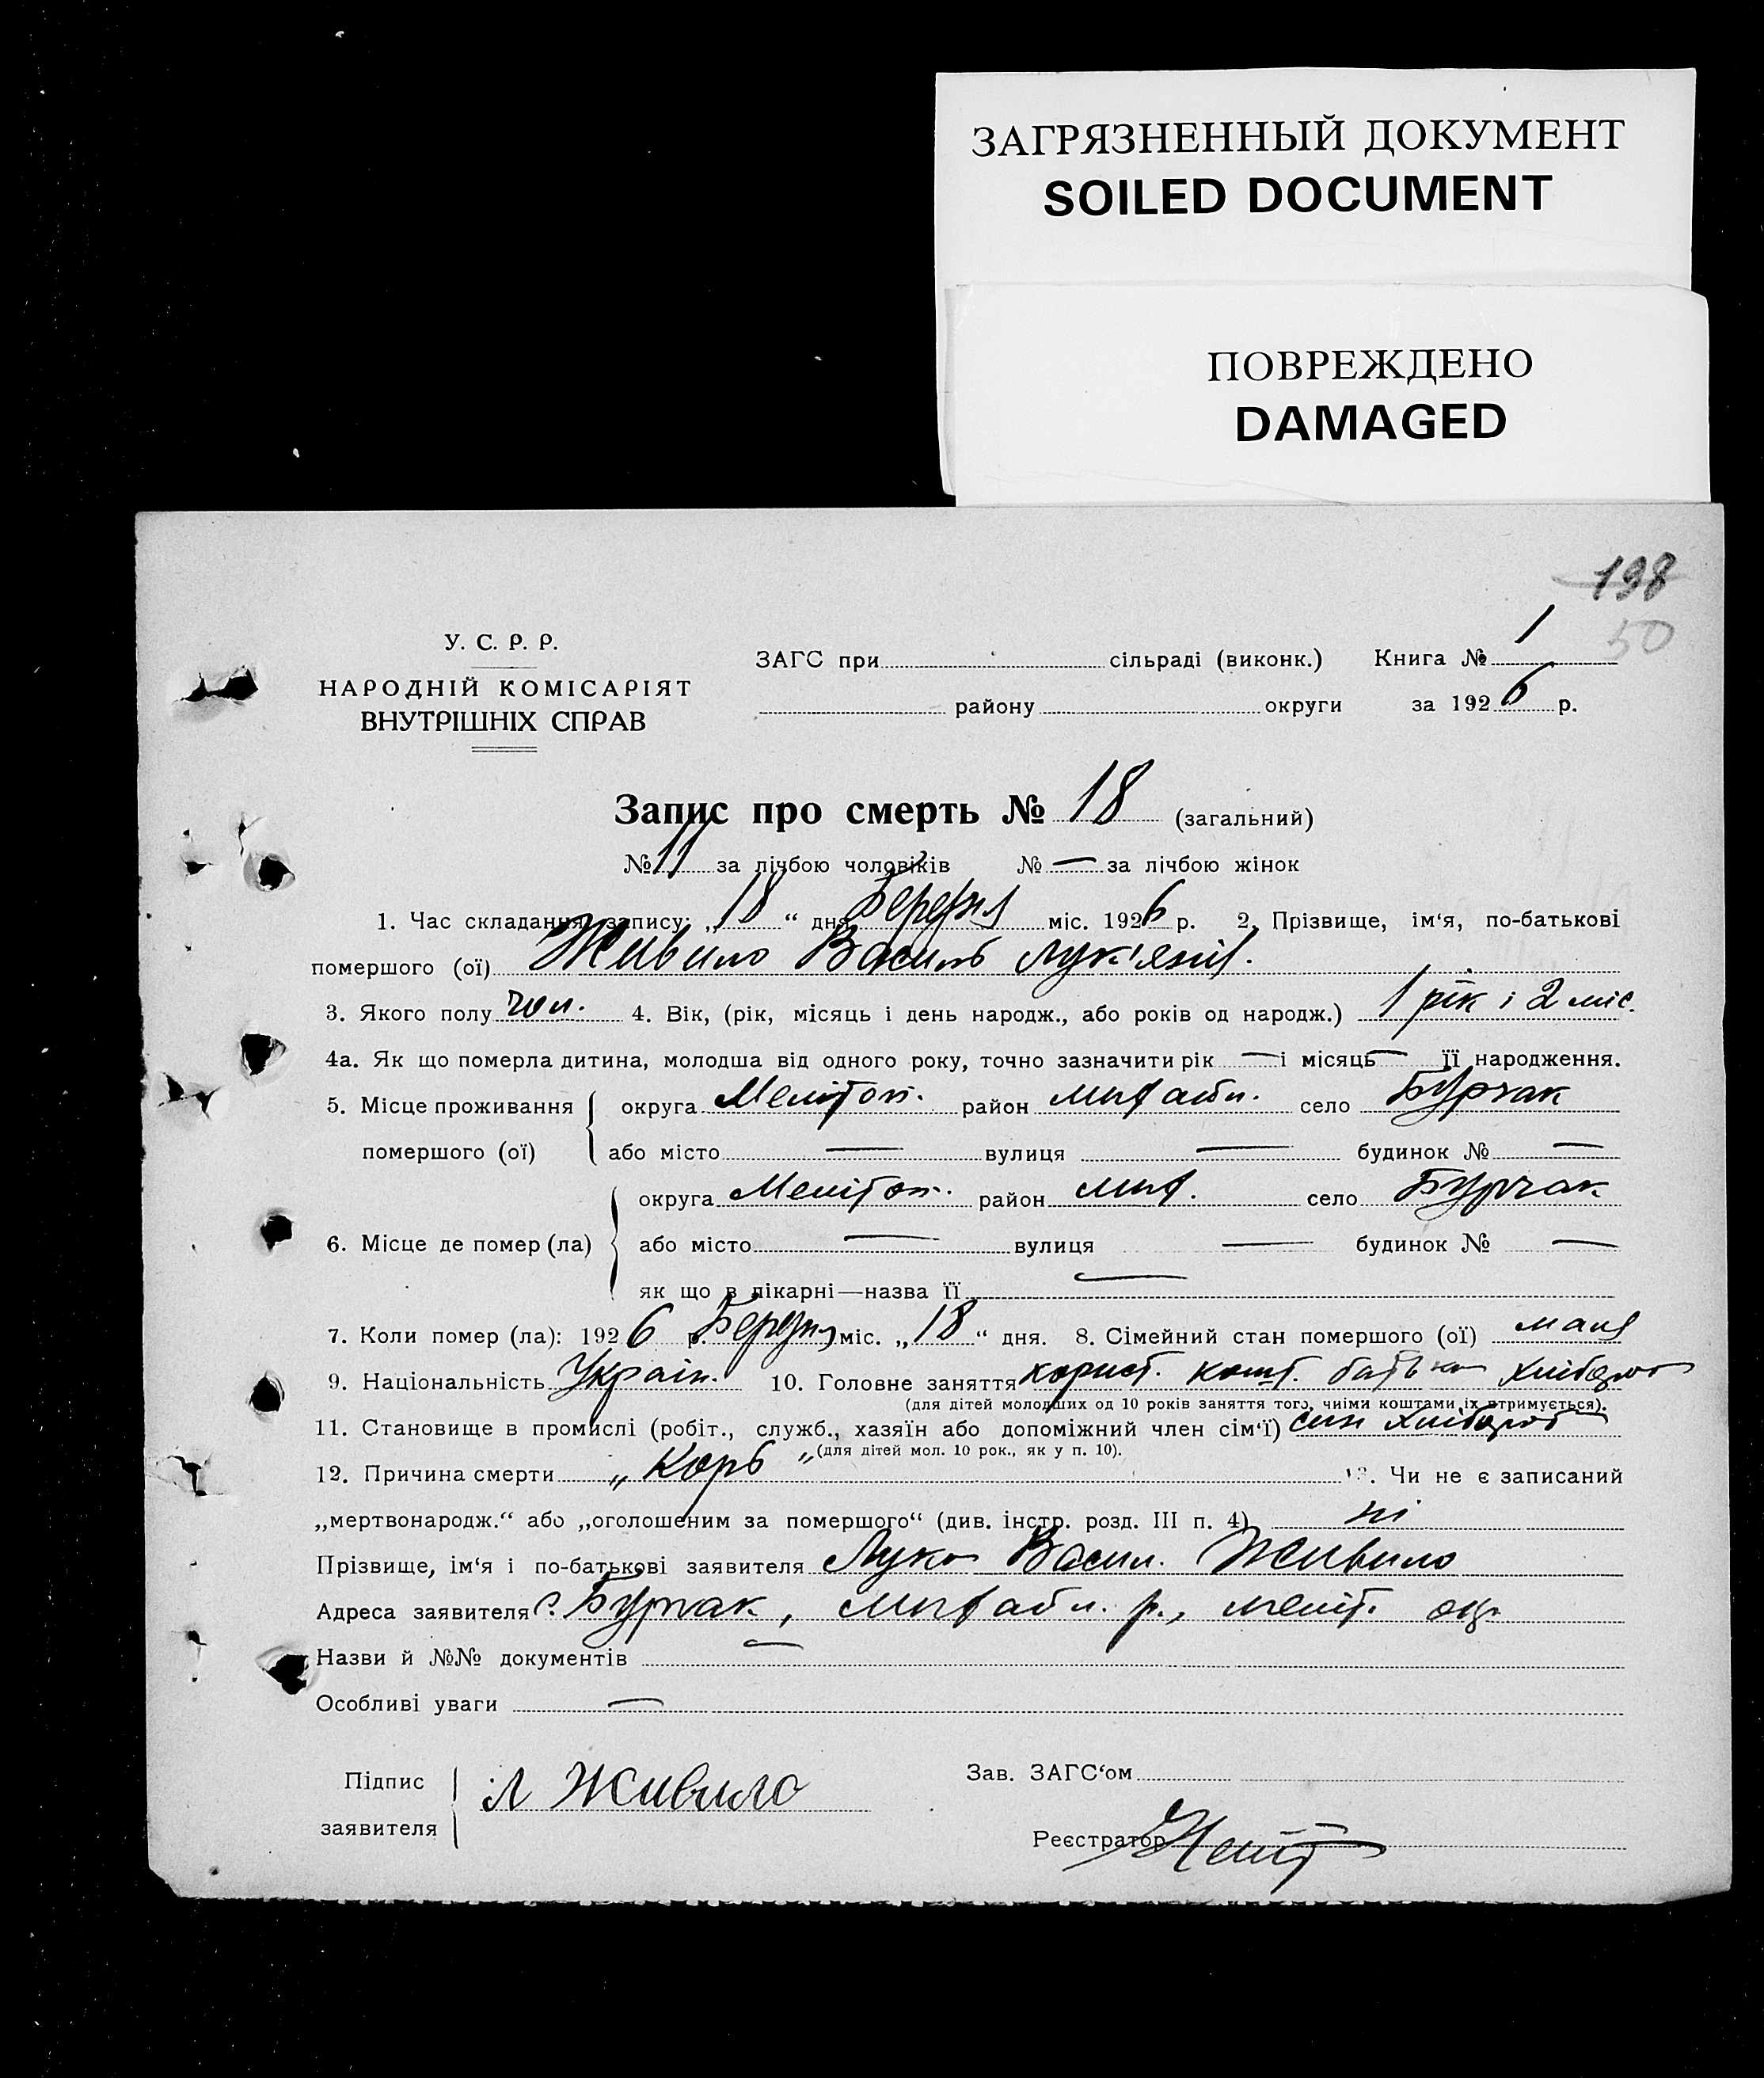 ЗАГРЯЗНЕННЫЙ ДОКУМЕНТ
SOILED DOCUMENT
ПОВРЕЖДЕНО
DAMAGED
198
50
У. С. Р. Р.
НАРОДНІЙ КОМІСАРІЯТ
ВНУТРІШНІХ СПРАВ
ЗАГС при сільраді (виконк.) Книга № 1
району округи за 1926 р.
Запис про смерть № 18 (загальний)
№ 11 за лічбою чоловіків № — за лічбою жінок
1. Час складання запису: „18“ дня Березня міс. 1926 р. 2. Прізвище, ім‘я, по-батькові
помершого (ої) Живило Василь Лук'янів.
3. Якого полу чол. 4. Вік, (рік, місяць і день народж., або років од народж.) 1 рік і 2 міс.
4а. Як що померла дитина, молодша від одного року, точно зазначити рік — і місяць — її народження.
5. Місце проживання округа Мелітоп. район село Бурчак
помершого (ої) або місто — вулиця — будинок № —
округа Мелітоп. район село Бурчак
6. Місце де помер (ла) або місто — вулиця — будинок № —
як що в лікарні—назва її —
7. Коли помер (ла): 1926 р. Березня міс. „18“ дня. 8. Сімейний стан помершого (ої)
9. Національність Україн. 10. Головне заняття корист. кошт. батька хлібороб
(для дітей молодших од 10 років заняття того, чиїми коштами їх втримується).
11. Становище в промислі (робіт., служб., хазяїн або допоміжний член сім‘ї) син хлібороб
(для дітей мол. 10 рок., як у п. 10).
12. Причина смерти „Корь“ 13. Чи не є записаний
„мертвонародж.“ або „оголошеним за помершого“ (див. інстр. розд. III п. 4) ні
Прізвище, ім‘я і по-батькові заявителя Лука Васил. Живило
Адреса заявителя с. Бурчак, р., меліт. окр.
Назви й №№ документів —
Особливі уваги —
Підпис
заявителя
Л Живило
Зав. ЗАГС‘ом
Реєстратор